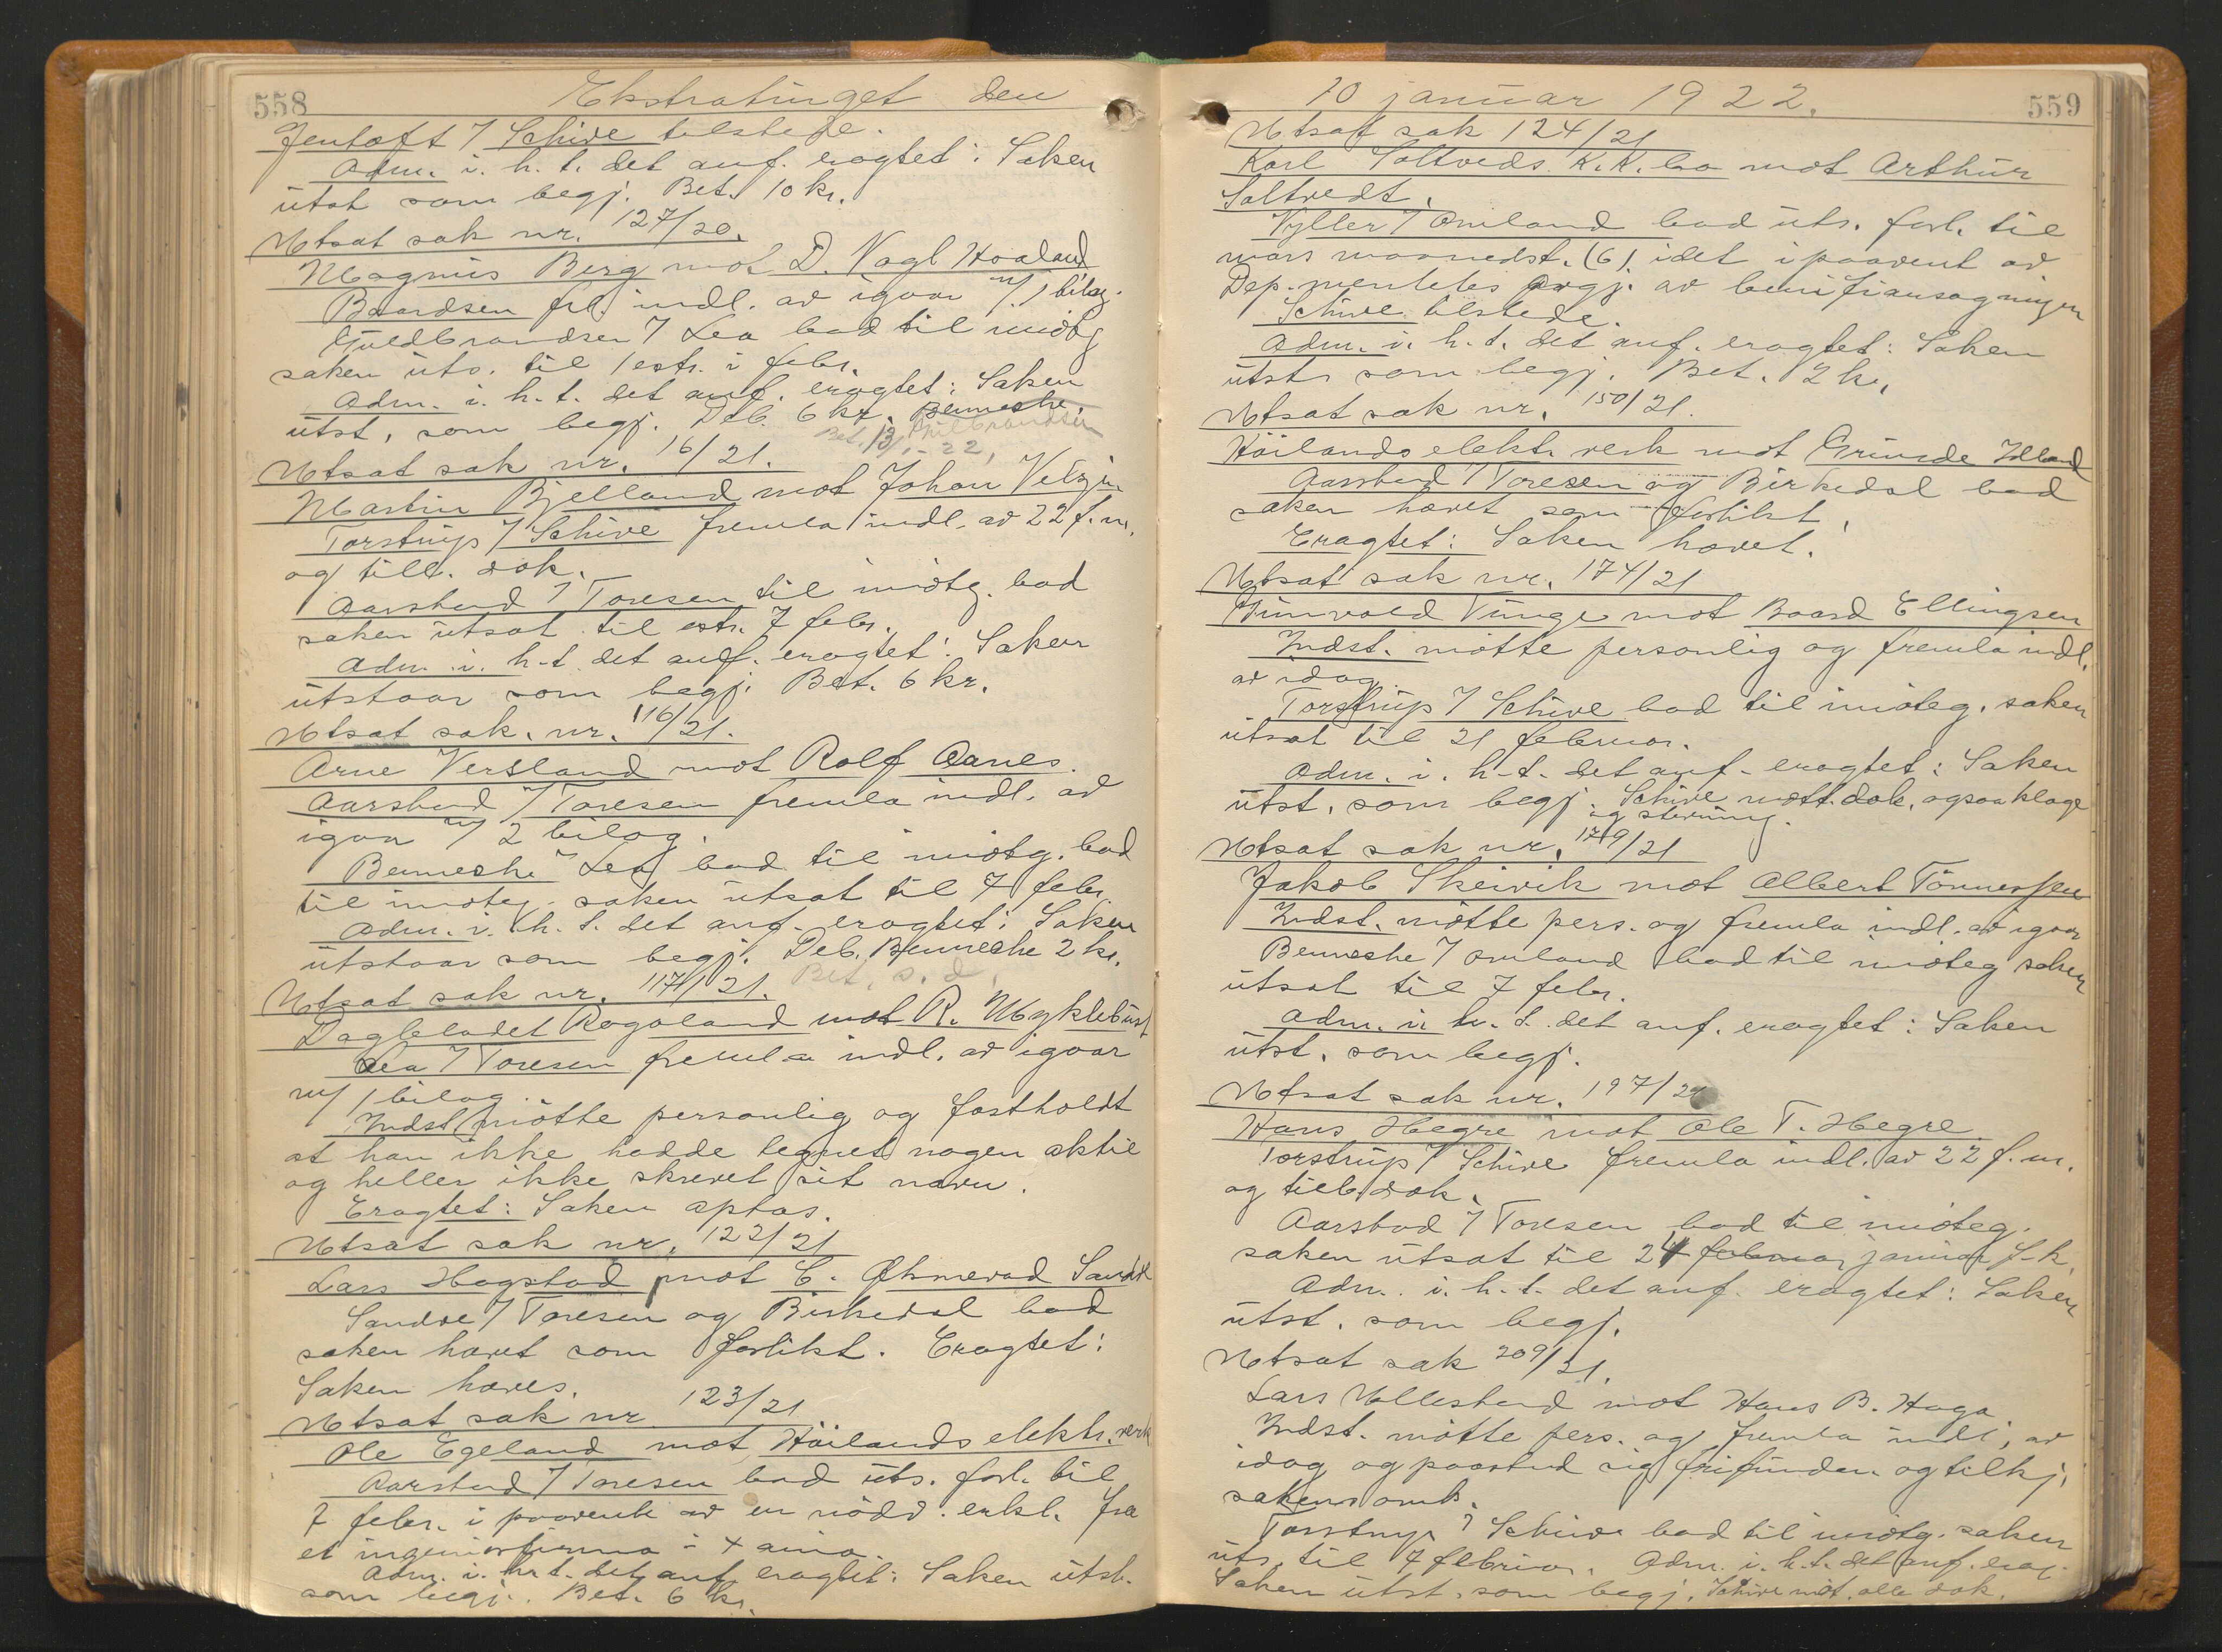 558
Ekstratinget den
Jentoft / Schive tilstede.
Adm. i. h. t. det anf. eragtet: Saken
utst som begj. Bet. 10 kr.
Utsat sak nr. 127/20.
Magnus Berg mot D. Nagl Hoaland
Baardsen frl. indl. av igaar m/ 1 bilag.
Guldbrandsen / Lea bad til imøtg
saken uts. til 1 estr. i febr.
Adm. i. h. t. det anf. eragtet: Saken
utst, som begj. Deb. 6 kr. Benneche.
Guldbrandsen
Bet. 13/1-22,
Utsat sak nr. 16/21.
Martin Bjelland mot Johan Vetzin
Torstrup / Schive fremla indl. av 22 f.m.
og till. dok.
Aarstad / Toresen til imøtg. bad
saken utsat til estr. 7 febr.
Adm. i. h. t. det anf. eragtet: Saken
utstaar som begj. Bet. 6 kr.
Utsat sak. nr. 116/21.
Arne Versland mot Rolf Aanes.
Aarstad / Toresen fremla indl. av
igaar m/ 2 bilag.
Benneche / Lea bad til imøtg. bad
til imøteg. saken utsat til 7 febr.
Adm. i. h. t. det anf. eragtet: Saken
utstaar som begj. Deb. Benneche 2 kr.
Bet. s. d.
Utsat sak nr. 117/21.
Dagbladet Rogaland mot R. Myklebust
Lea / Toresen fremla indl. av igaar
m/ 1 bilag.
Indst. møtte personlig og fastholdt
at han ikke hadde tegnet nogen aktie
og heller ikke skrevet sit navn.
Eragtet: Saken optas.
Utsat sak nr. 122/21
Lars Hogstad mot C. Ohmevad Sandve
Sandve / Toresen og Birkedal bad
saken hævet som forlikt. Eragtet:
Saken hæves.
Utsat sak nr 123/21
Ole Egeland mot Høilands elektr. verk
Aarstad / Toresen bad uts. forl. til
7 febr. i paavente av en nødv. erkl. fra
et ingeniørfirma i
Adm. i. h. t. det anf. eragtet: Saken utst.
som begj. Bet. 6 kr.
10 januar 1922.
559
Utsat sak 124/21
Karl Saltveds K.K. bo mot Arthur
Saltvedt.
Vyller / Omland bad uts. forl. til
mars maanedst. (6). idet i paavent av
Dep.mentetes avgj. av benifiansøgningen
Schive tilstede.
Adm. i. h. t. det anf. eragtet: Saken
utst. som begj. Bet. 2 kr.
Utsat sak nr. 150/21.
Høilands elektr. verk mot Gunde Idland
Aarstad / Toresen og Birkedal bad
saken hævet som forlikt.
Eragtet: Saken hævet.
Utsat sak nr. 174/21
Gunvald Tunge mot Baard Ellingsen
Indst. møtte personlig og fremla indl.
av idag.
Torstrup / Schive bad til imøteg. saken
utsat til 21 februar.
Adm. i. h. t. det anf. eragtet: Saken
utst. som begj. Schive mott. dok. ogsaa klage
og stevning.
Utsat sak nr. 179/21
Jakob Skeivik mot Albert Tønnessen
Indst. møtte pers. og fremla indl. av igaar
Benneche / Omland bad til imøteg saken
utsat til 7 febr.
Adm. i. h. t. det anf. eragtet: Saken
utst. som begj.
Utsat sak nr. 197/21
Hans Hegre mot Ole T. Hegre.
Torstrup / Schive fremla indl. av 22 f.m.
og till. dok.
Aarstad / Toresen bad til imøteg.
saken utsat til 24 februar januar f.k.
Adm. i. h. t. det anf. eragtet: Saken
utst. som begj.
Utsat sak 209/21.
Lars Ullestad mot Hans B. Haga
Indst. møtte pers. og fremla indl. av
idag og paastod sig frifunden og tilkj.
sakens omk.
Torstrup / Schive bad til imøtg. saken
uts. til 7 februar. Adm. i. h. t. det anf. erag.
Saken utst. som begj. Schive møt. alle dok.